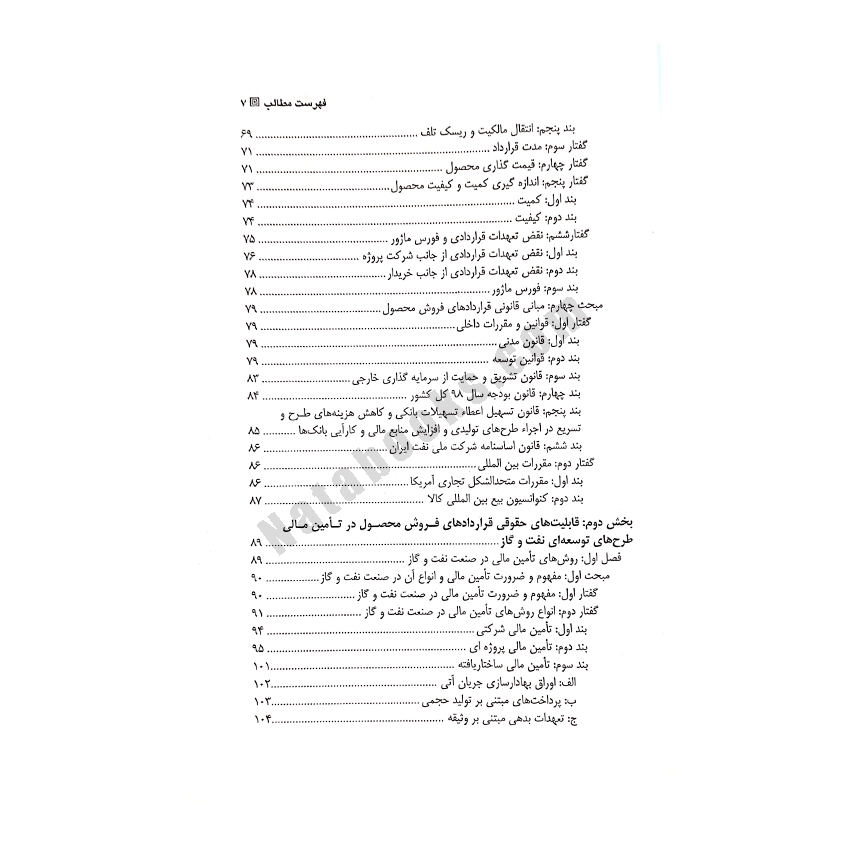 فهرست مطالب ۷
بند پنجم: انتقال مالکیت و ریسک تلف ۶۹
گفتار سوم: مدت قرارداد ۷۱
گفتار چهارم: قیمت گذاری محصول ۷۱
گفتار پنجم: اندازه گیری کمیت و کیفیت محصول ۷۳
بند اول: کمیت ۷۴
بند دوم: کیفیت ۷۴
گفتارششم: نقض تعهدات قراردادی و فورس ماژور ۷۵
بند اول: نقض تعهدات قراردادی از جانب شرکت پروژه ۷۶
بند دوم: نقض تعهدات قراردادی از جانب خریدار ۷۸
بند سوم: فورس ماژور ۷۸
مبحث چهارم: مبانی قانونی قراردادهای فروش محصول ۷۹
گفتار اول: قوانین و مقررات داخلی ۷۹
بند اول: قانون مدنی ۷۹
بند دوم: قوانین توسعه ۷۹
بند سوم: قانون تشویق و حمایت از سرمایه گذاری خارجی ۸۳
بند چهارم: قانون بودجه سال ۹۸ کل کشور ۸۴
بند پنجم: قانون تسهیل اعطاء تسهیلات بانکی و کاهش هزینه‌های طرح و
تسریع در اجراء طرح‌های تولیدی و افزایش منابع مالی و کارآیی بانک‌ها ۸۵
بند ششم: قانون اساسنامه شرکت ملی نفت ایران ۸۶
گفتار دوم: مقررات بین المللی ۸۶
بند اول: مقررات متحدالشکل تجاری آمریکا ۸۶
بند دوم: کنوانسیون بیع بین المللی کالا ۸۷
بخش دوم: قابلیت‌های حقوقی قراردادهای فروش محصول در تأمین مالی
طرح‌های توسعه‌ای نفت و گاز ۸۹
فصل اول: روش‌های تأمین مالی در صنعت نفت و گاز ۸۹
مبحث اول: مفهوم و ضرورت تأمین مالی و انواع آن در صنعت نفت و گاز ۹۰
گفتار اول: مفهوم و ضرورت تأمین مالی در صنعت نفت و گاز ۹۰
گفتار دوم: انواع روش‌های تأمین مالی در صنعت نفت و گاز ۹۱
بند اول: تأمین مالی شرکتی ۹۴
بند دوم: تأمین مالی پروژه ای ۹۵
بند سوم: تأمین مالی ساختاریافته ۱۰۱
الف: اوراق بهادارسازی جریان آتی ۱۰۲
ب: پرداخت‌های مبتنی بر تولید حجمی ۱۰۳
ج: تعهدات بدهی مبتنی بر وثیقه ۱۰۴
Natabooks.com